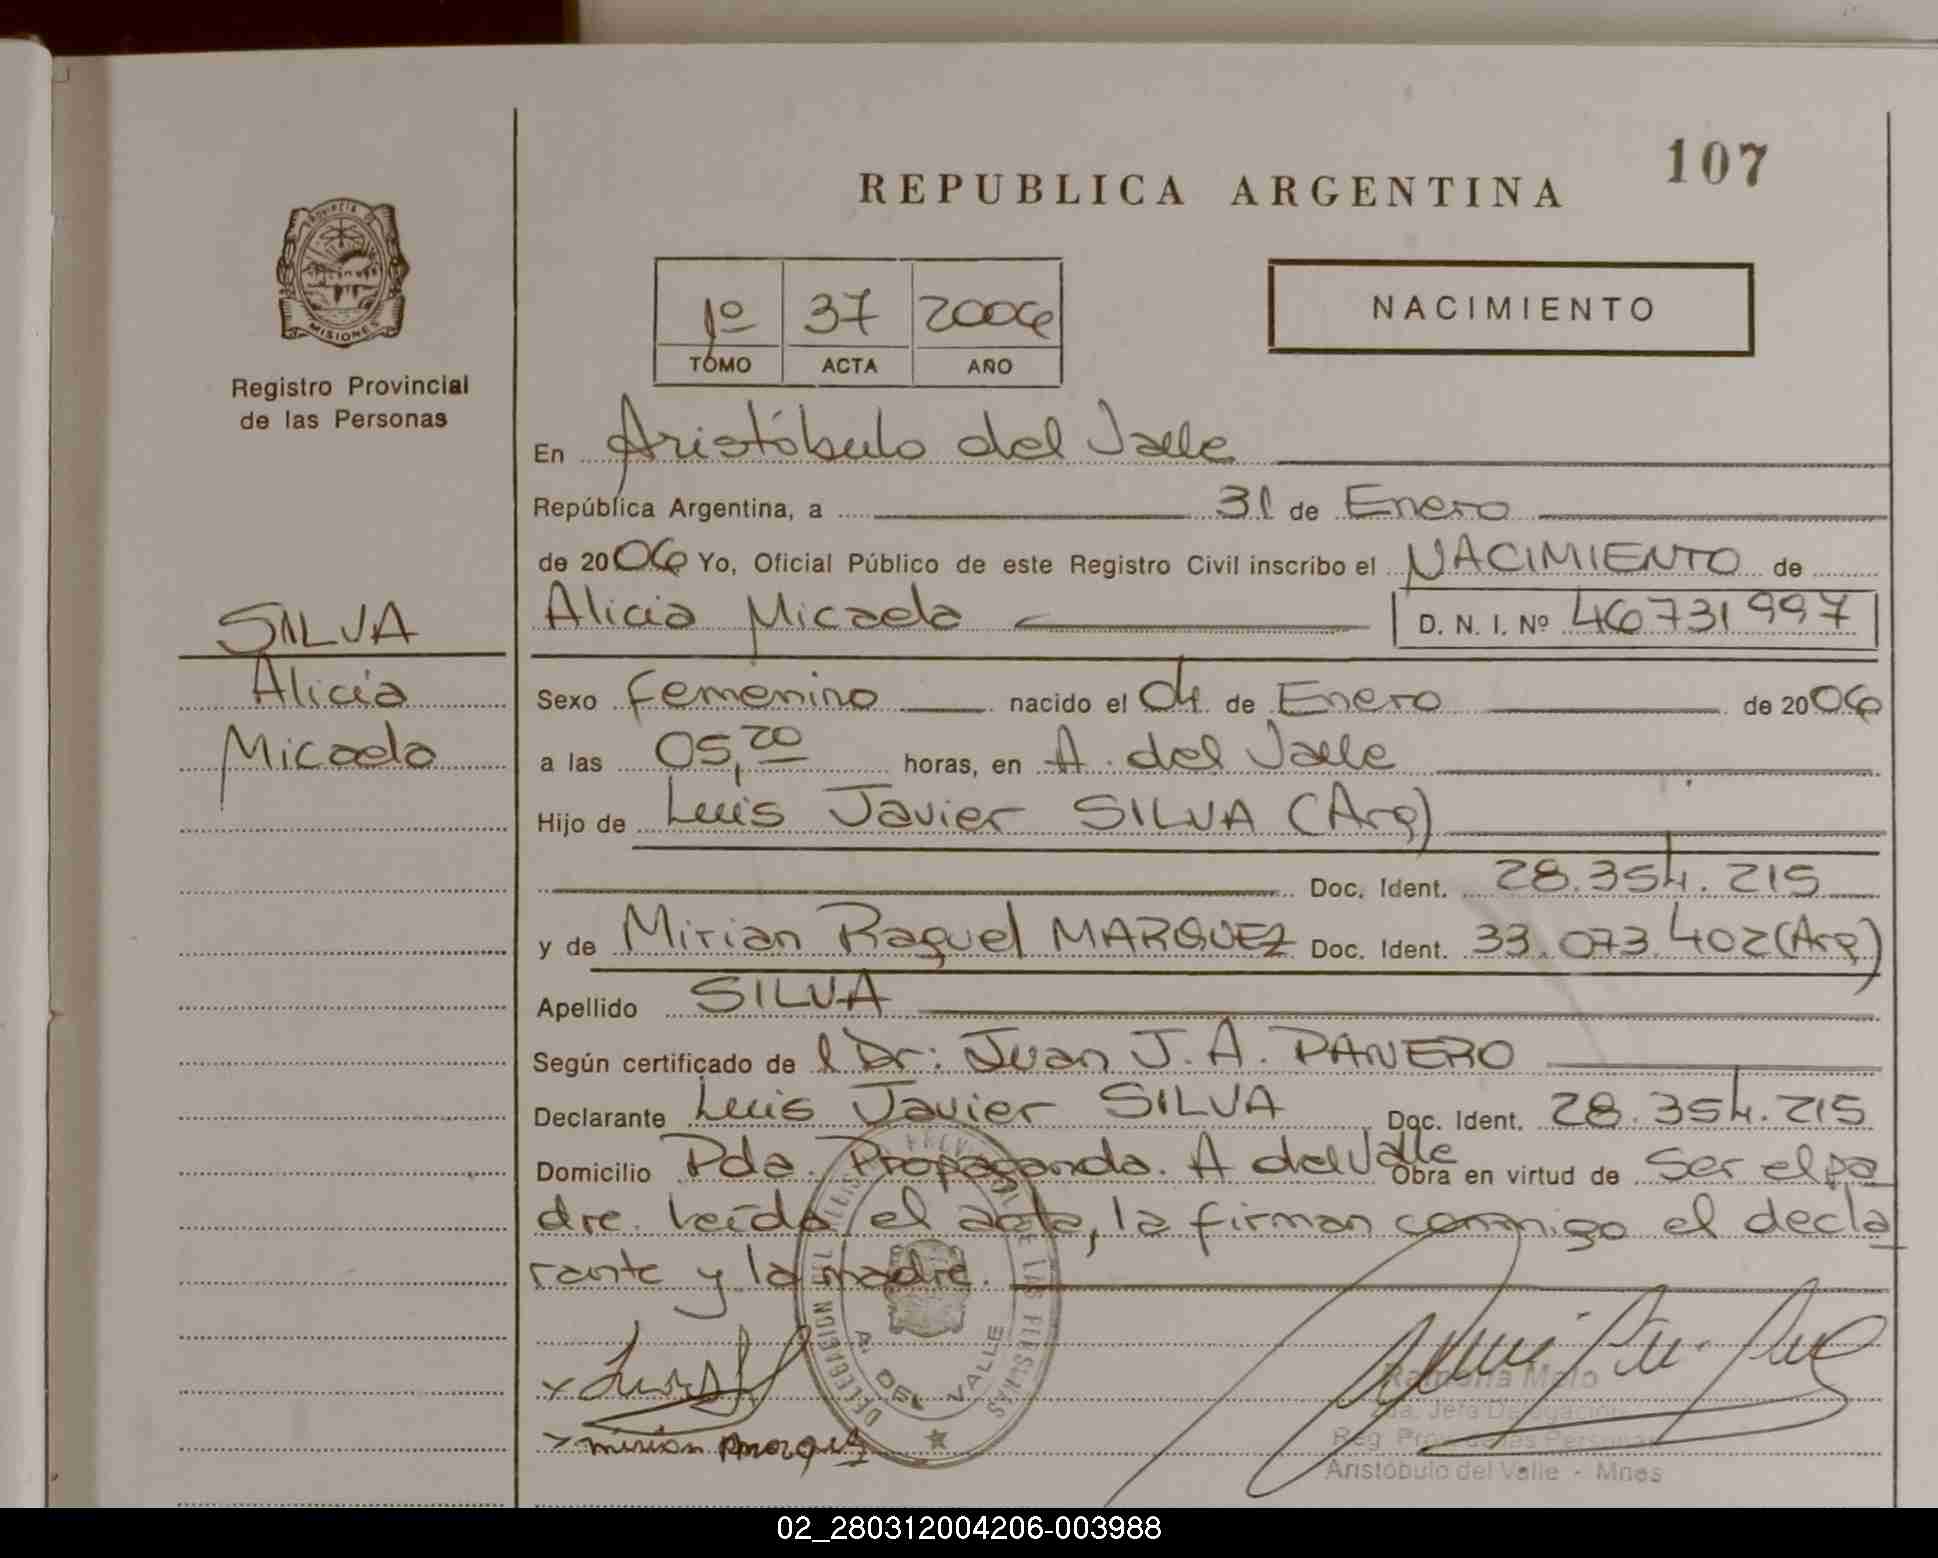 REPUBLICA ARGENTINA
107
PROVINCIA DE
MISIONES
Registro Provincial
de las Personas
1º 37 2006
TOMO ACTA AÑO
NACIMIENTO
En Aristóbulo del Valle
República Argentina, a 31 de Enero
de 2006 Yo, Oficial Público de este Registro Civil inscribo el NACIMIENTO de
Alicia Micaela D. N. I. Nº 46731997
SILVA
Alicia
Micaela
Sexo femenino nacido el 04 de Enero de 2006
a las 05,20 horas, en A. del Valle
Hijo de Luis Javier SILVA (Arg)
Doc. Ident. 28.354.215
y de Mirian Raquel MARQUEZ Doc. Ident. 33.073.402 (Arg)
Apellido SILVA
Según certificado de l Dr: Juan J. A. PANERO
Declarante Luis Javier SILVA Doc. Ident. 28.354.215
Domicilio Pda. Propaganda. A del Valle Obra en virtud de Ser el pa
dre. Leída el acta, la firman conmigo el decla
rante y la madre.
DELEGACION DEL REGISTRO PROVINCIAL DE LAS PERSONAS
A. DEL VALLE
x Luis
x mirian marquez
Ramona Melo
2da. Jefa Delegación
Reg. Prov. de las Personas
Aristóbulo del Valle - Mnes
02_280312004206-003988